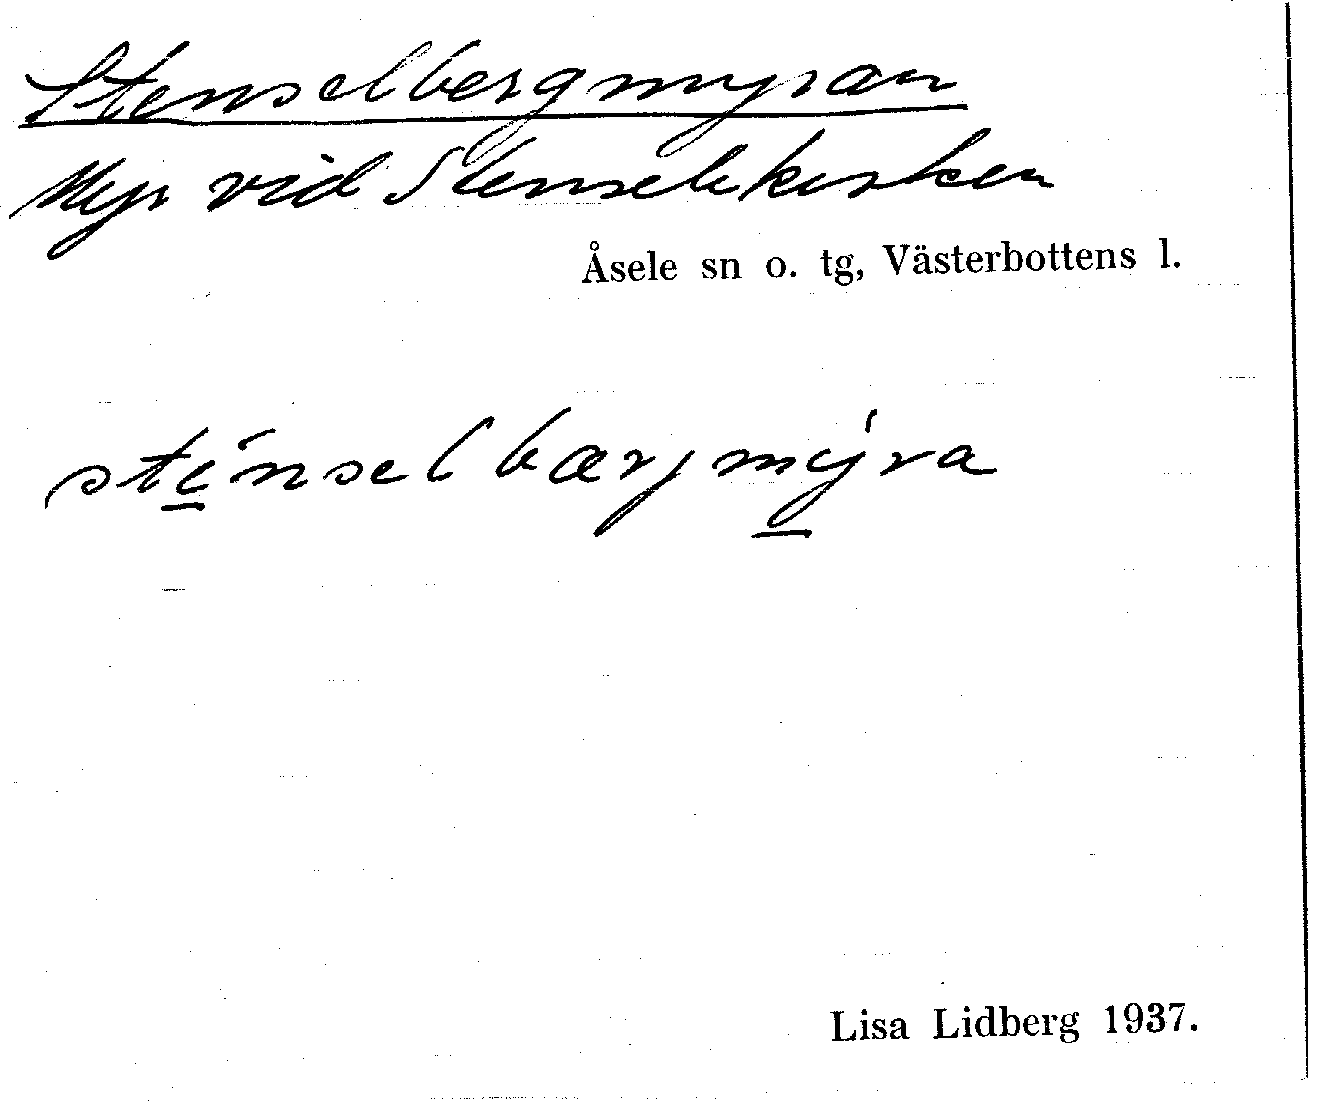 Stenselbergmyran
Myr vid Stenselekyrkan
Åsele sn o. tg, Västerbottens l.
sténselbærjmýra
Lisa Lidberg 1937.